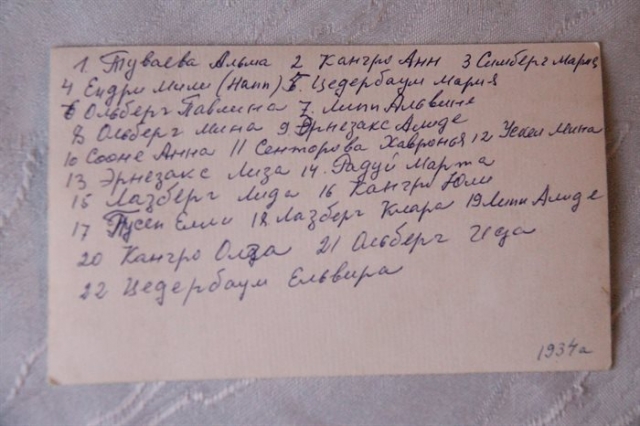 1. Туваева Альма 2 Кангро Анн 3 Симберг Мария
4 Ендри Мили (Напп) 5. Цедербаум Мария
6 Ольберг Павлина 7. Липп Альвине
8 Ольберг Мина 9 Эрнезакс Алиде
10 Сооне Анна 11 Сенторова Хавронья 12 Ускел Миина
13 Эрнезакс Лиза 14. Радуй Марта
15 Лазберг Лида 16 Кангро Юли
17 Пусеп Елли 18 Лазберг Клара 19 Липп Алиде
20 Кангро Олза 21 Ольберг Ида
22 Цедербаум Ельвира
1934 а